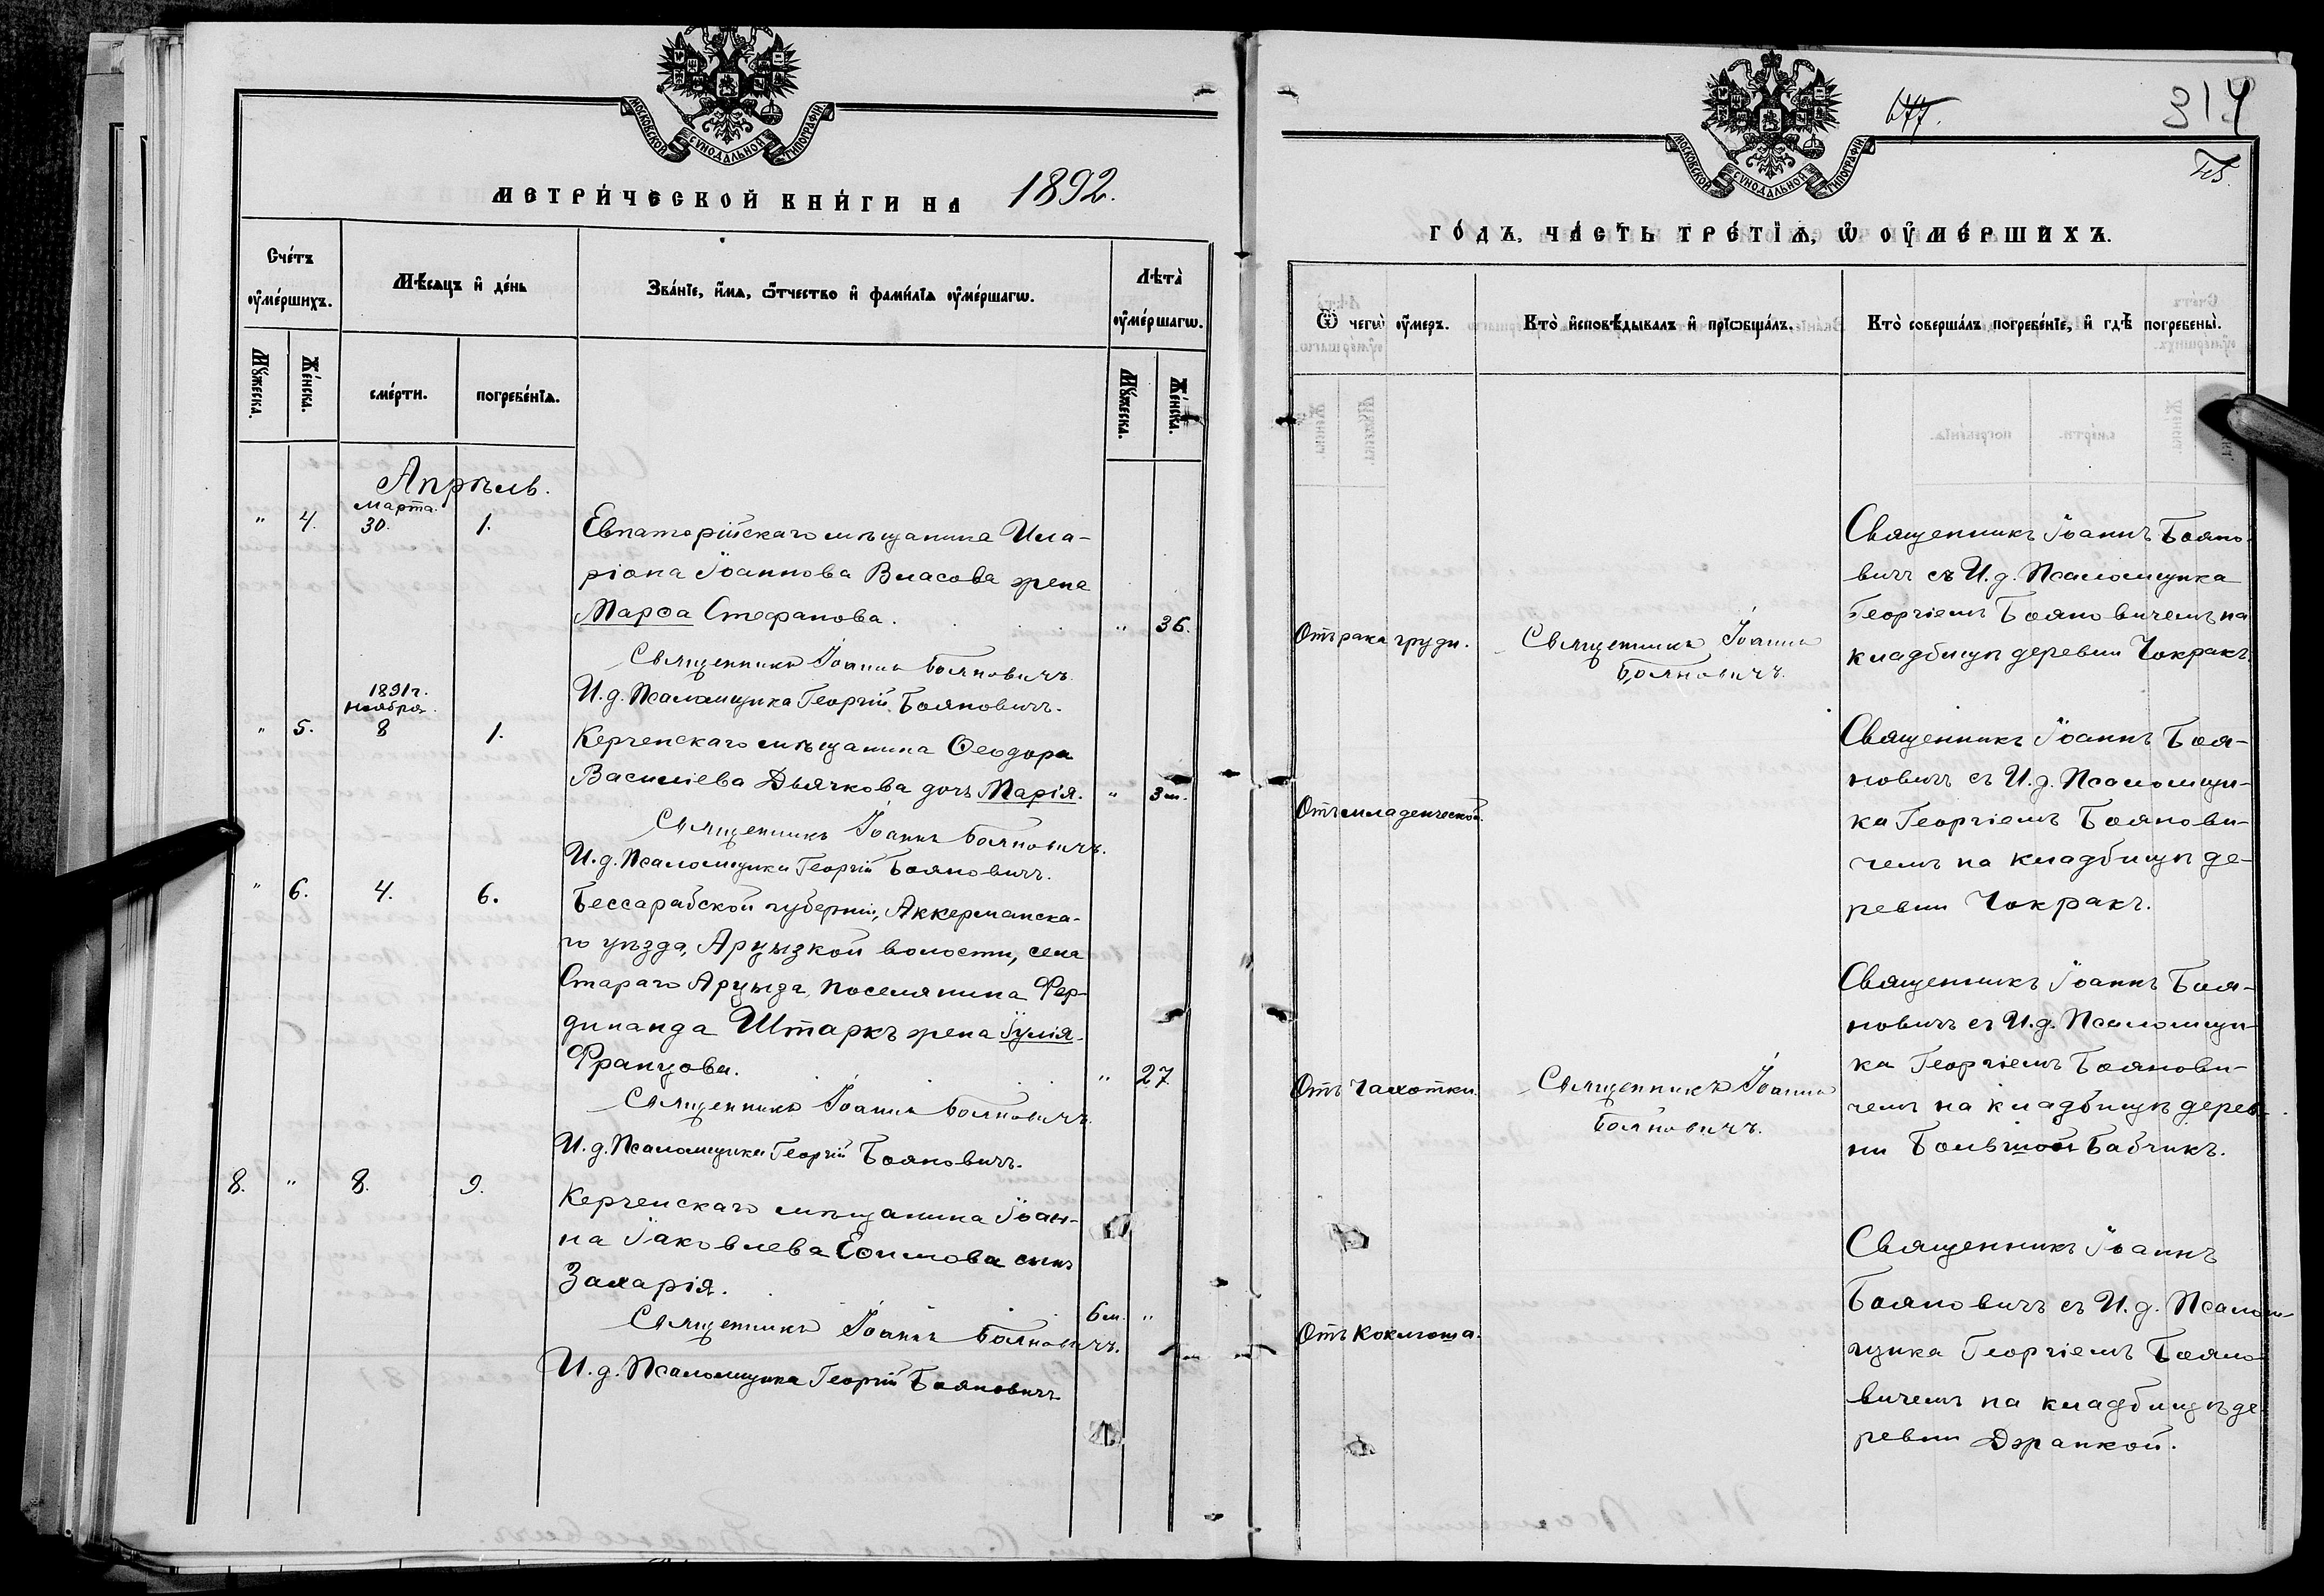 МОСКОВСКОЙ СѴНОДАЛЬНОЙ ТИПОГРАФІИ
МЕТРИ́ЧЕСКОЙ КНИ́ГИ НА 1892.
Сче́тъ ᲂу҆ме́ршихъ.
Мѣ́сяцъ и҆ де́нь
Зва́нїе, и҆́мѧ, ѻ҆́тчество и҆ фами́лїѧ ᲂу҆ме́ршагѡ.
Лѣта̀ ᲂу҆ме́ршагѡ.
Мꙋ́жеска.
Же́нска.
сме́рти.
погребе́нїѧ.
Мꙋ́жеска.
Же́нска.
Апрѣль.
марта.
" 4. 30. 1.
Евпаторійскаго мѣщанина Ила-
ріона Іоаннова Власова жена
Марѳа Стефанова. " 36.
Священникъ Іоаннъ Бояновичъ.
И. д. Псаломщика Георгій Бояновичъ.
1891 г.
ноября.
" 5. 8 1.
Керченскаго мѣщанина Ѳеодора
Василіева Дьячкова дочь Марія. " 3 м.
Священникъ Іоаннъ Бояновичъ.
И. д. Псаломщика Георгій Бояновичъ.
" 6. 4. 6.
Бессарабской губерніи, Аккерманска-
го уѣзда, Арцызкой волости, села
Стараго Арцыза, поселянина Фер-
динанда Штаркъ жена Іулія
Францова. " 27
Священникъ Іоаннъ Бояновичъ.
И. д. Псаломщика Георгій Бояновичъ.
8. " 8. 9.
Керченскаго мѣщанина Іоан-
на Іаковлева Еѳимова сынъ
Захарія.
6 м. "
Священникъ Іоаннъ Бояновичъ.
И. д. Псаломщика Георгій Бояновичъ
МОСКОВСКОЙ СѴНОДАЛЬНОЙ ТИПОГРАФІИ
677.
314
ГО́ДЪ, ЧА́СТЬ ТРЕ́ТЇѦ, Ѡ҆ ОУ҆МЕ́РШИХЪ.
Ѿ чегѡ̀ ᲂу҆́меръ.
Кто̀ и҆сповѣ́дывалъ и҆ прїѡбща́лъ.
Кто̀ соверша́лъ погребе́нїе, и҆ гдѣ̀ погребены̀.
Отъ рака груди.
Священникъ Іоаннъ
Бояновичъ.
Священникъ Іоаннъ Бояно-
вичъ съ И. д. Псаломщика
Георгіемъ Бояновичемъ на
кладбищѣ деревни Чокракъ.
Отъ младенческой.
Священникъ Іоаннъ Боя-
новичъ съ И. д. Псаломщи-
ка Георгіемъ Боянови-
чемъ на кладбищѣ де-
ревни Чокракъ.
Отъ чахотки.
Священникъ Іоаннъ
Бояновичъ.
Священникъ Іоаннъ Боя-
новичъ съ И. д. Псаломщи-
ка Георгіемъ Боянови-
чемъ на кладбищѣ дерев-
ни Большой Бабчикъ.
Отъ коклюша.
Священникъ Іоаннъ
Бояновичъ съ И. д. Псалом-
щика Георгіемъ Бояно-
вичемъ на кладбищѣ де-
ревни Джанкой.